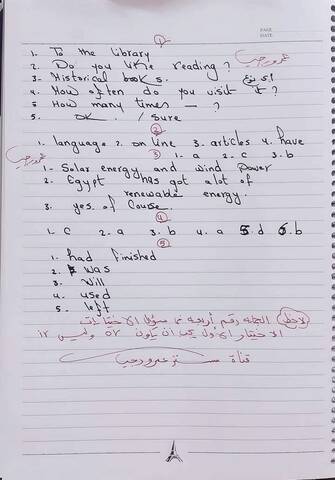 PAGE
DATE
①
1. To the library
2. Do you like reading?
3. Historical books. اى نوع
4. How often do you visit it?
5 How many times — ?
5. OK. / Sure
②
1. language 2. on line 3. articles 4. have
③
1. a 2. c 3. b
1- Solar energy and wind power
2- Egypt has got a lot of
renewable energy.
3. yes. of Course.
④
1. c 2. a 3. b 4. a 5. d 6. b
⑤
1. had finished
2. was
3. will
4. used
5. left
الجملة رقم أربعه فى سؤال الاختيارات
الاختيار الأول يجب أن يكون وليس
قناة مستر عمرو رجب